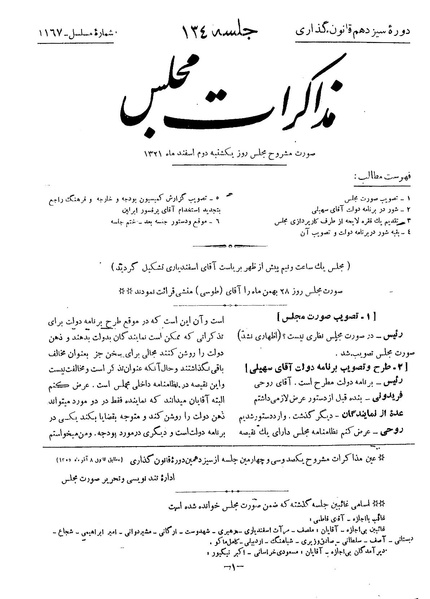 دورهٔ سیزدهم قانون‌گذاری
جلسه ۱۳۴
شمارهٔ مسلسل - ۱۱۶۷
مذاکرات مجلس
صورت مشروح مجلس روز یکشنبه دوم اسفند ماه ۱۳۲۱
فهرست مطالب:
۱ - تصویب صورت مجلس
۲ - شور در برنامه دولت آقای سهیلی
۳ - تقدیم یک فقره لایحه از طرف کارپردازی مجلس
۴ - بقیه شور در برنامه دولت و تصویب آن
۵ - تصویب گزارش کمیسیون بودجه و خارجه و فرهنگ راجع
بتجدید استخدام آقای پرفسور ابرلین
۶ - موقع و دستور جلسه بعد - ختم جلسه
( مجلس یک ساعت و نیم پیش از ظهر بریاست آقای اسفندیاری تشکیل گردید )
صورت مجلس روز ۲۸ بهمن ماه را آقای (طوسی) منشی قرائت نمودند **
[ ۱ - تصویب صورت مجلس ]
رئیس - در صورت مجلس نظری نیست؟ (اظهاری نشد)
صورت مجلس تصویب شد.
[ ۲ - طرح و تصویب برنامه دولت آقای سهیلی ]
رئیس - برنامه دولت مطرح است. آقای روحی
فریدونی - بنده قبل از دستور عرض لازمی داشتم
عدهٔ از نمایندگان - دیگر گذشت. وارد دستور شدیم
روحی - عرض کنم نظامنامه مجلس دارای یک نقیصه
است و آن این است که در موقع طرح برنامه دولت برای
تذکراتی که ممکن است نمایندگان بدولت بدهند و ذهن
دولت را روشن کنند مجالی برای سخن جز بعنوان مخالف
باقی نگذاشتند و حال آنکه عنوان تذکر است و مخالفت نیست
و این نقیصه در نظامنامه داخلی مجلس است. عرض کنم
البته آقایان میدانند که نماینده فقط در دو مورد میتواند
ذهن دولت را روشن کند و متوجه بقضایا بکند یکی در
برنامه دولت است و دیگری در مورد بودجه. و من میخواستم
* عین مذاکرات مشروح یکصد و سی و چهارمین جلسه از سیزدهمین دورهٔ قانون گذاری
اداره تند نویسی و تحریر صورت مجلس
** اسامی غائبین جلسه گذشته که ضمن صورت مجلس خوانده شده است
غائب با اجازه - آقای فاطمی؛